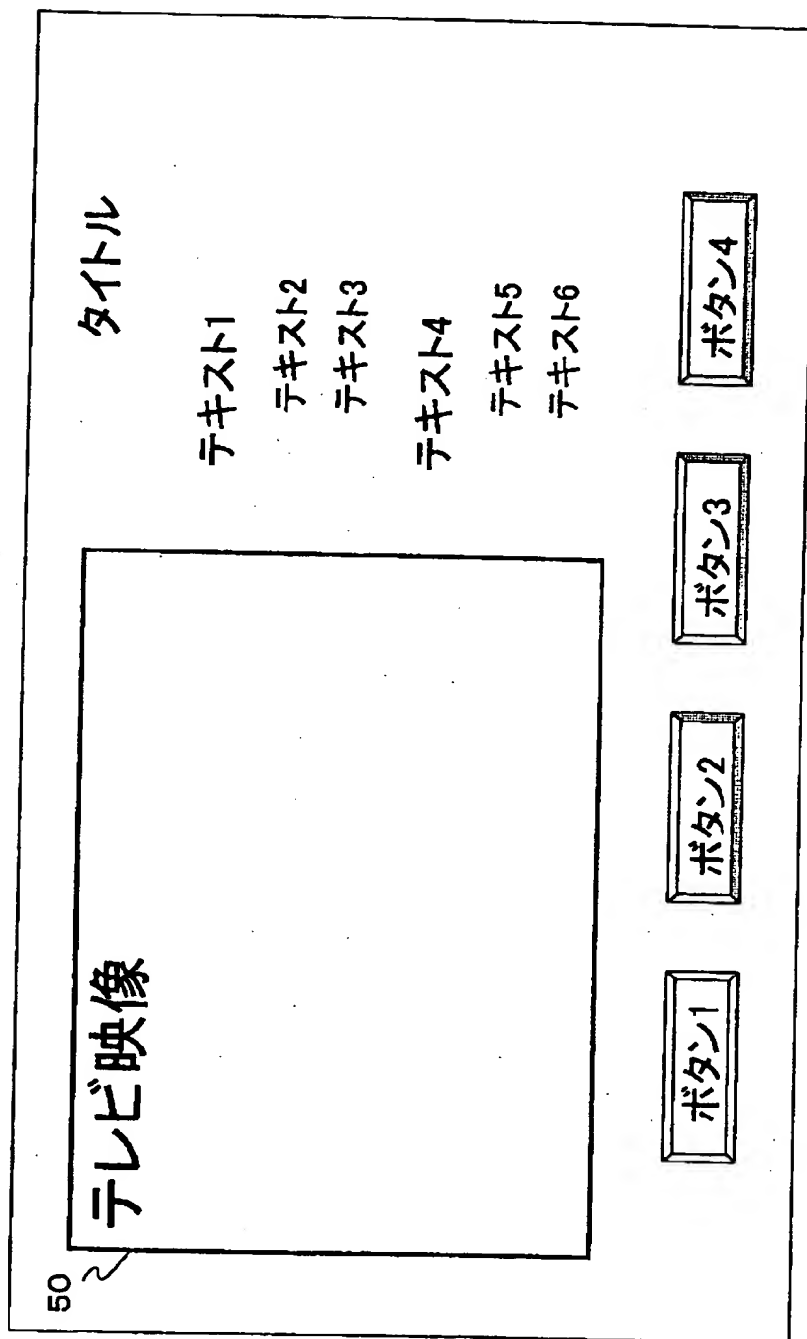 50
テレビ映像
タイトル
テキスト1
テキスト2
テキスト3
テキスト4
テキスト5
テキスト6
ボタン1
ボタン2
ボタン3
ボタン4